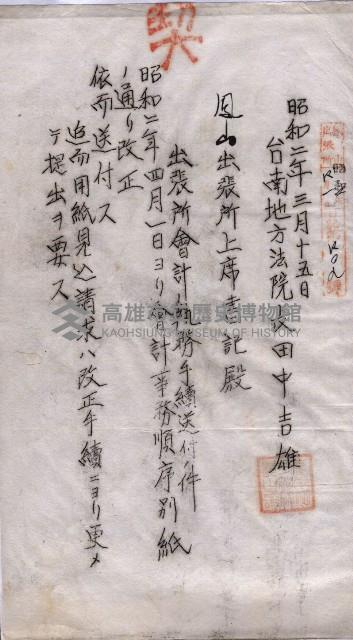 契
昭和二年三月十五日
台南地方法院長田中吉雄
鳳山出張所上席書記殿
出張所會計事務手續送付ノ件
昭和二年四月一日ヨリ會計事務順序別紙
ノ通リ改正
依而送付ス
追而用紙見込請求ハ改正手續ニヨリ更メ
テ提出ヲ要ス
高雄市立歷史博物館
KAOHSIUNG MUSEUM OF HISTORY